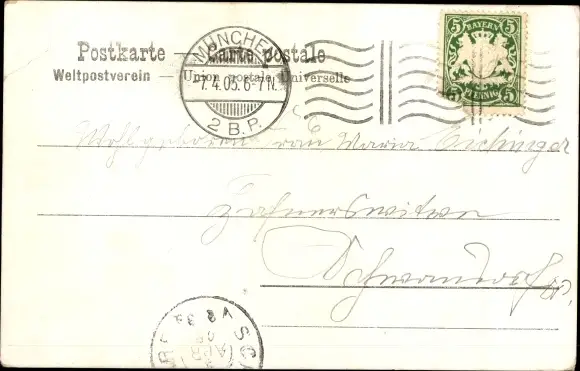 Postkarte — Carte postale
Weltpostverein — Union postale Universelle
MÜNCHEN
7.4.05. 6-7 N.
2 B.P.
5 BAYERN 5
5 PFENNIG 5
Wohlgeboren Frau Maria Eichinger
Schwandorf